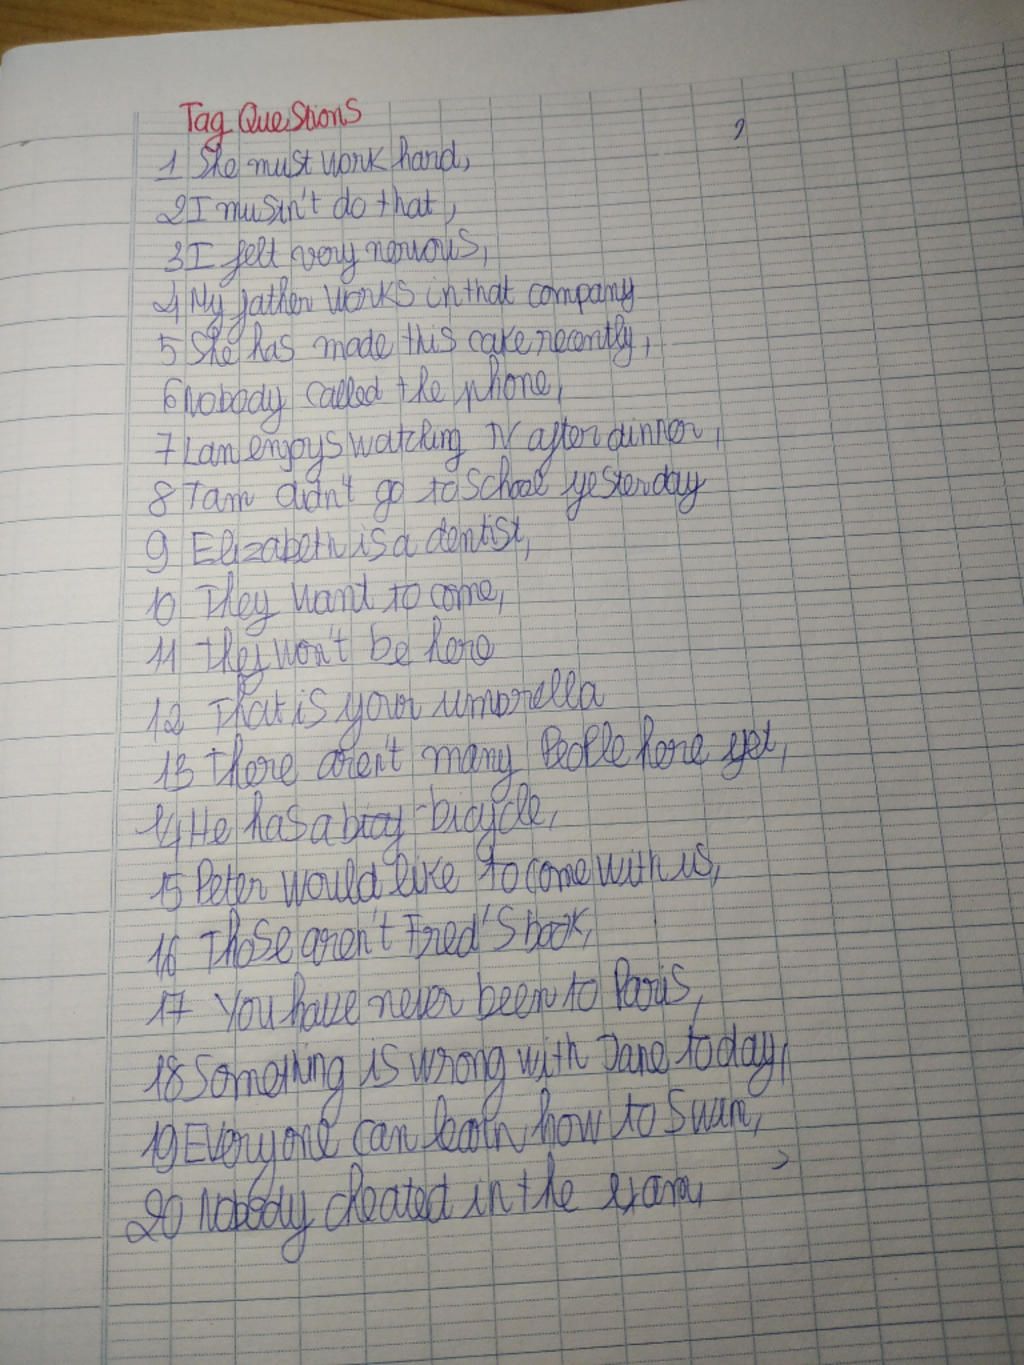 Tag Questions
1 She must work hard,
2 I musn't do that,
3 I felt very nervous,
4 My father works in that company
5 She has made this cake recently,
6 Nobody called the phone,
7 Lan enjoys watching TV after dinner,
8 Tam didn't go to School yesterday
9 Elizabeth is a dentist,
10 They want to come,
11 they won't be here
12 That is your umbrella
13 There aren't many People here yet,
14 He has a bicycle,
15 Peter would like to come with us,
16 Those aren't Fred's book,
17 You have never been to Paris,
18 Something is wrong with Jane today,
19 Everyone can learn how to Swim,
20 Nobody cheated in the exam,